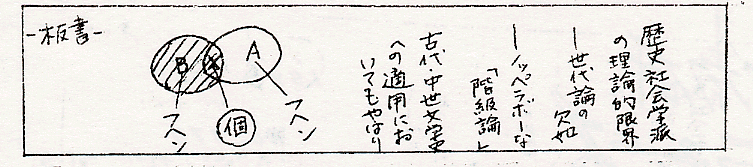 歴史社会学派
の理論的限界
―世代論の
欠如
―ノッペラボーな
「階級論」
古代・中世文学史
への適用にお
いてもやはり
―板書―
A
X
B
フヘン
個
フヘン